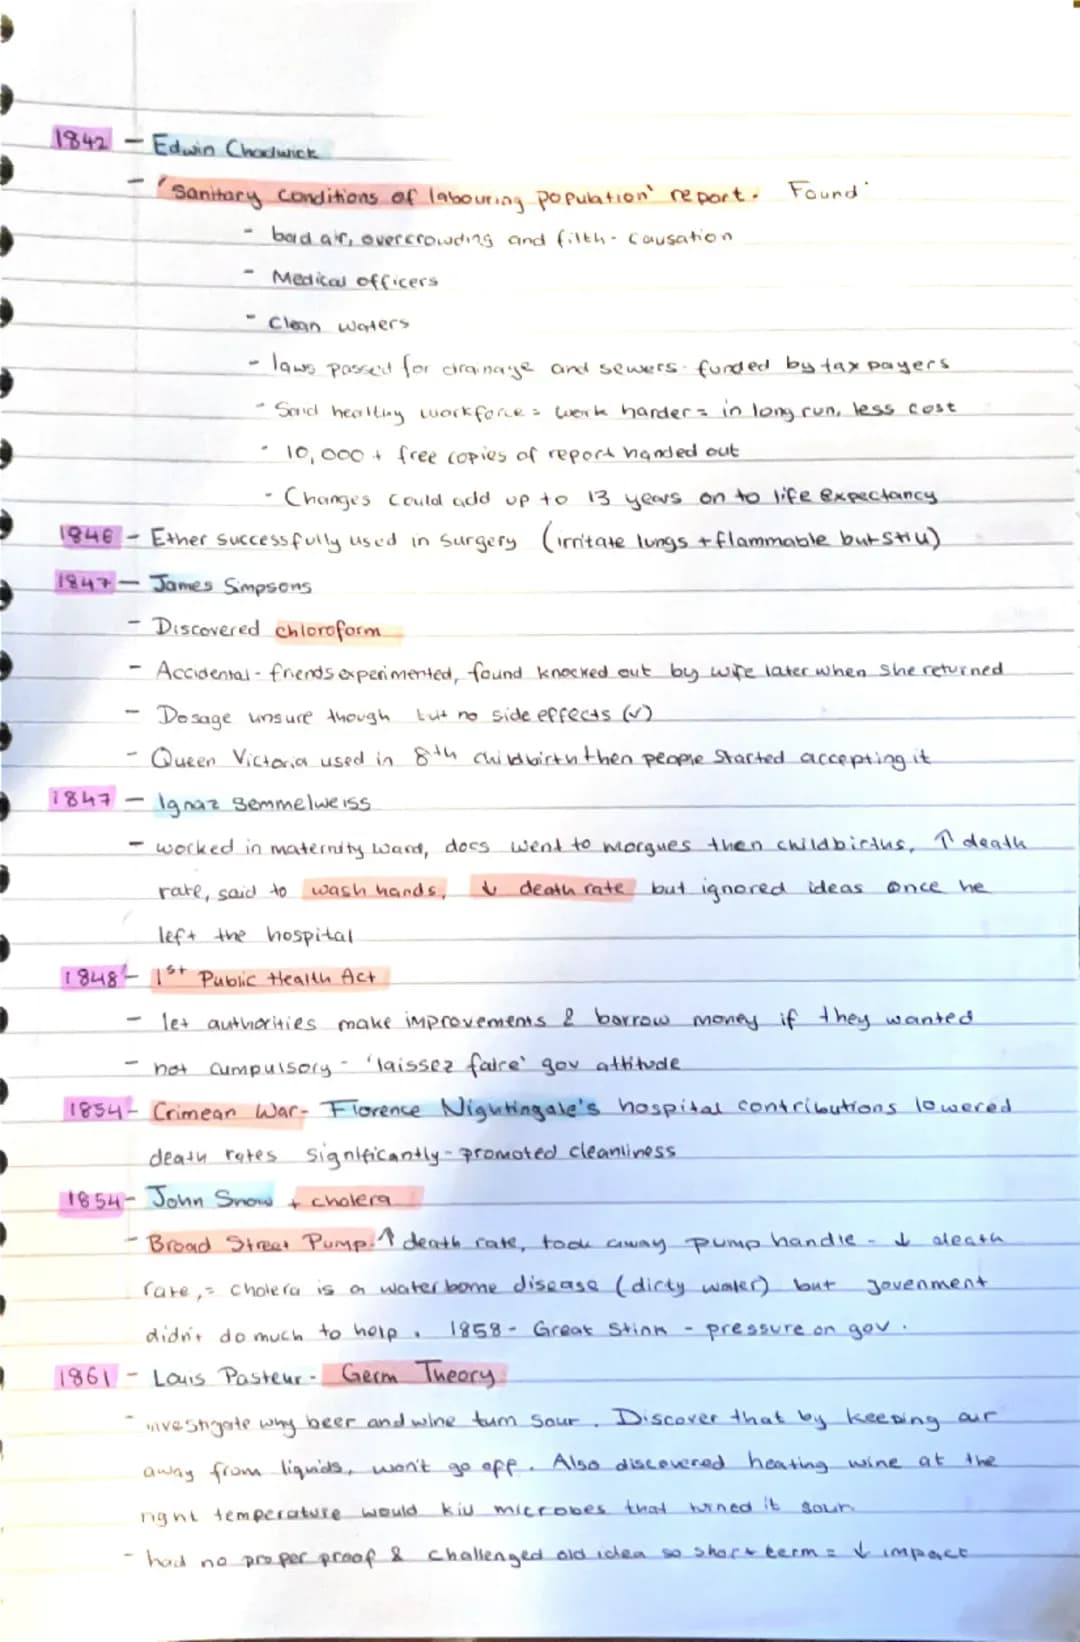 1842 - Edwin Chadwick
- 'Sanitary conditions of labouring population' report. Found
- bad air, overcrowding and filth - causation
- Medical officers
- Clean waters
- laws passed for drainage and sewers - funded by tax payers
- Said healthy workforce = work harder = in long run, less cost
- 10,000 + free copies of report handed out
- Changes could add up to 13 years on to life expectancy
1846 - Ether successfully used in surgery (irritate lungs + flammable but still)
1847 - James Simpsons
- Discovered chloroform
- Accidental - friends experimented, found knocked out by wife later when she returned
- Dosage unsure though but no side effects (✓)
- Queen Victoria used in 8th childbirth then people started accepting it
1847 - Ignaz Semmelweiss
- worked in maternity ward, docs went to morgues then childbirths, ↑ death
rate, said to wash hands, ↓ death rate but ignored ideas once he
left the hospital
1848 - 1st Public Health Act
- let authorities make improvements & borrow money if they wanted
- not cumpulsory - 'laissez faire' gov attitude
1854 - Crimean War - Florence Nightingale's hospital contributions lowered
death rates significantly - promoted cleanliness
1854 - John Snow + cholera
- Broad Street Pump. ↑ death rate, took away pump handle - ↓ death
rate, = cholera is a waterborne disease (dirty water) but govenment
didn't do much to help. 1858 - Great Stink - pressure on gov.
1861 - Louis Pasteur - Germ Theory
- investigate why beer and wine turn sour. Discover that by keeping air
away from liquids, won't go off. Also discovered heating wine at the
right temperature would kill microbes that turned it sour.
- had no proper proof & challenged old idea so short term = ↓ impact